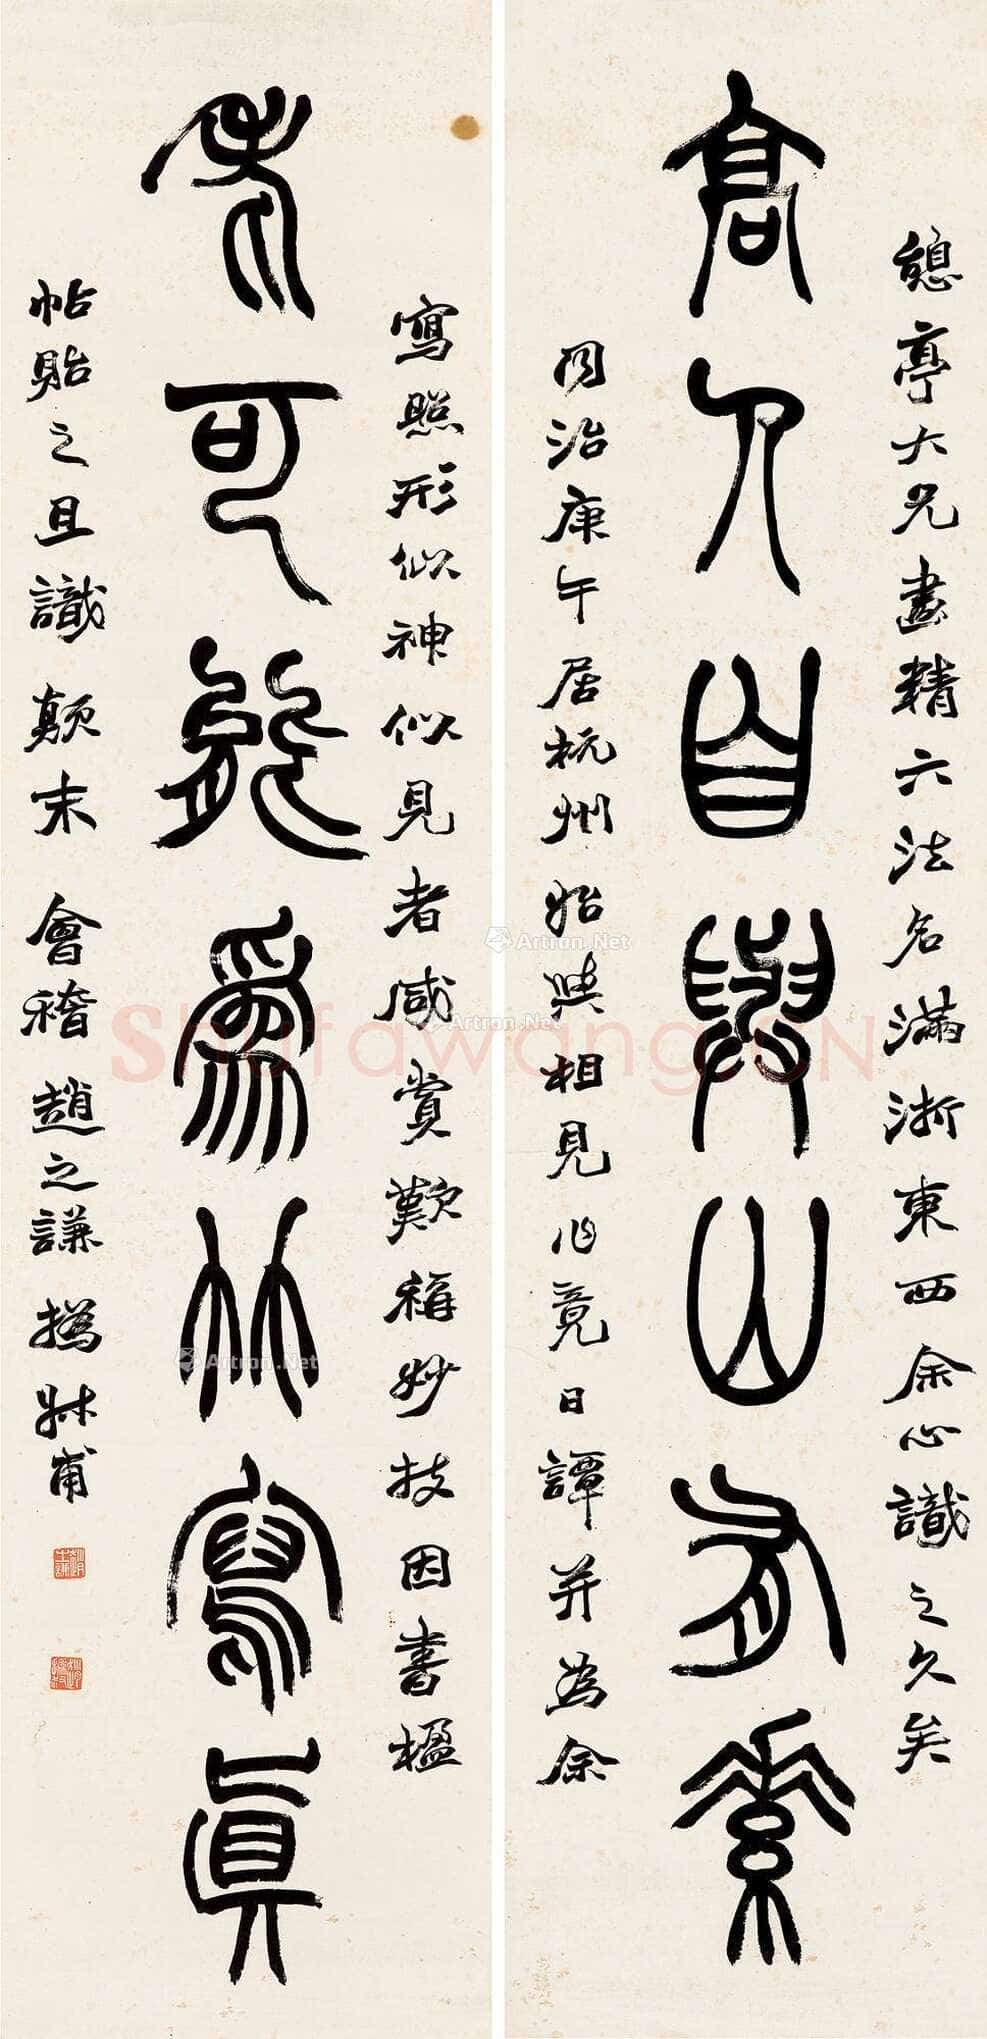 憩亭大兄畫精六法名滿浙東西余心識之久矣
高人自與山有素
同治庚午居杭州始與相見作竟日譚并為余
寫照形似神似見者咸賞歎稱妙技因書楹
老可能為竹寫真
帖貽之且識顛末 會稽趙之謙撝叔甫
Artron.Net
Artron.Net
Artron.Net
shufawang.CN